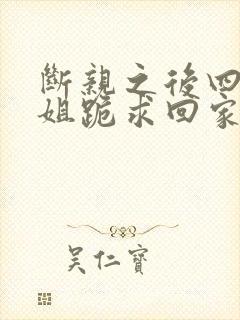 斷親之後四
姐跪求回家
吳仁寶